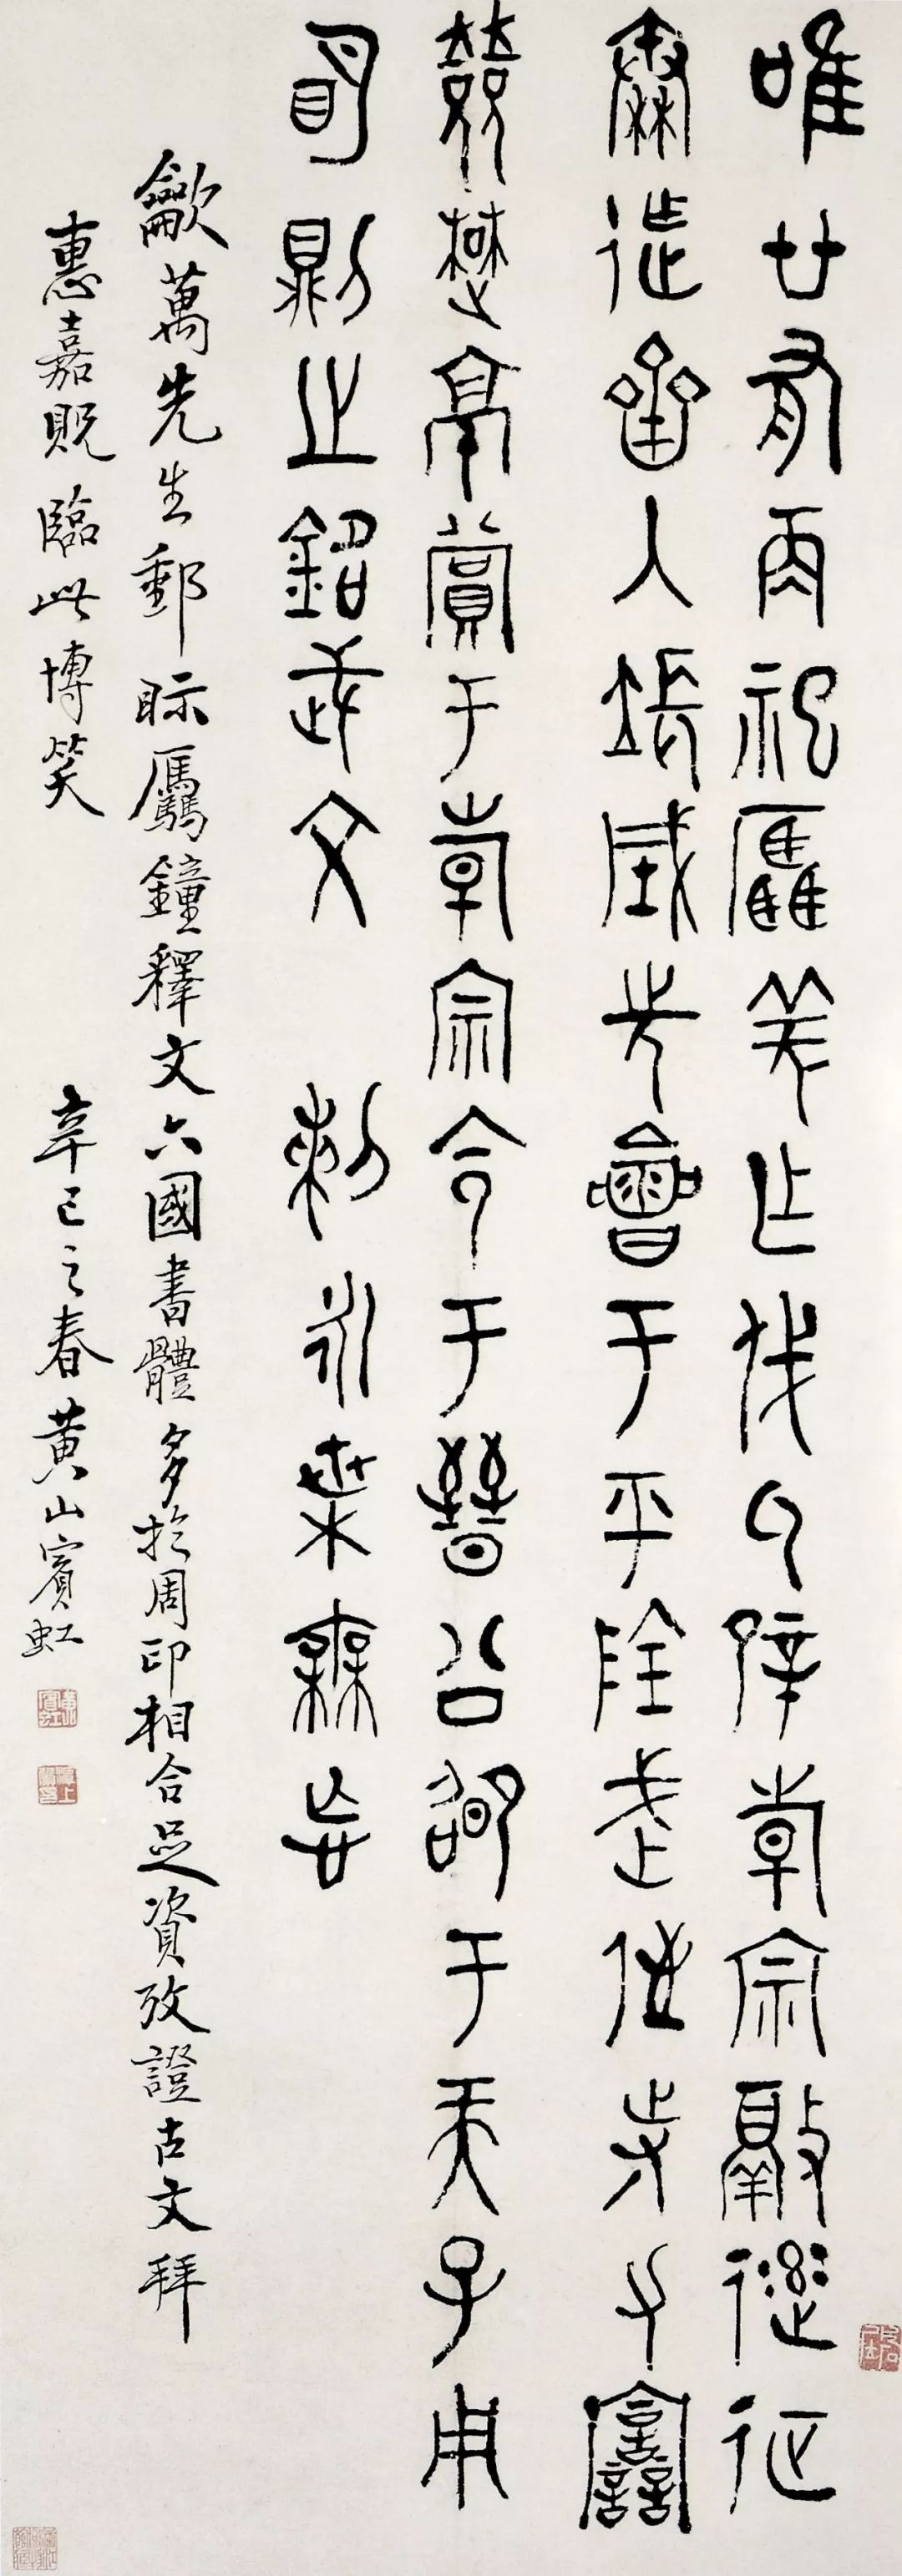 唯廿又再祀驫羌乍伐氒辟倝宗敲逹征
秦迮齊入張城先會于平陰武侄寺力譶
楚京賞于倝宗令于晉公卲于天子用
明則之銘武文 剌永枼無忘
㰶萬先生郵眎驫鐘釋文六國書體多於周印相合足資攷證古文拜
惠嘉貺臨此博笑 辛巳之春黃山賓虹